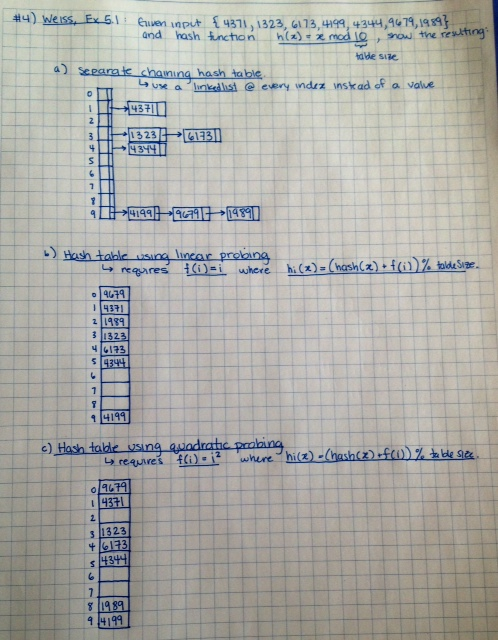 #4) Weiss, Ex 5.1 Given input { 4371, 1323, 6173, 4199, 4344, 9679, 1989}
and hash function h(x) = x mod 10, show the resulting:
table size
a) separate chaining hash table
↳ use a linkedlist @ every index instead of a value
0
1 → 4371
2
3 → 1323 → 6173
4 → 4344
5
6
7
8
9 → 4199 → 9679 → 1989
b) Hash table using linear probing
↳ requires f(i)=i where hi(x) = (hash(x) + f(i)) % tableSize.
0 9679
1 4371
2 1989
3 1323
4 6173
5 4344
6
7
8
9 4199
c) Hash table using quadratic probing
↳ requires f(i) = i² where hi(x) = (hash(x) + f(i)) % table size.
0 9679
1 4371
2
3 1323
4 6173
5 4344
6
7
8 1989
9 4199